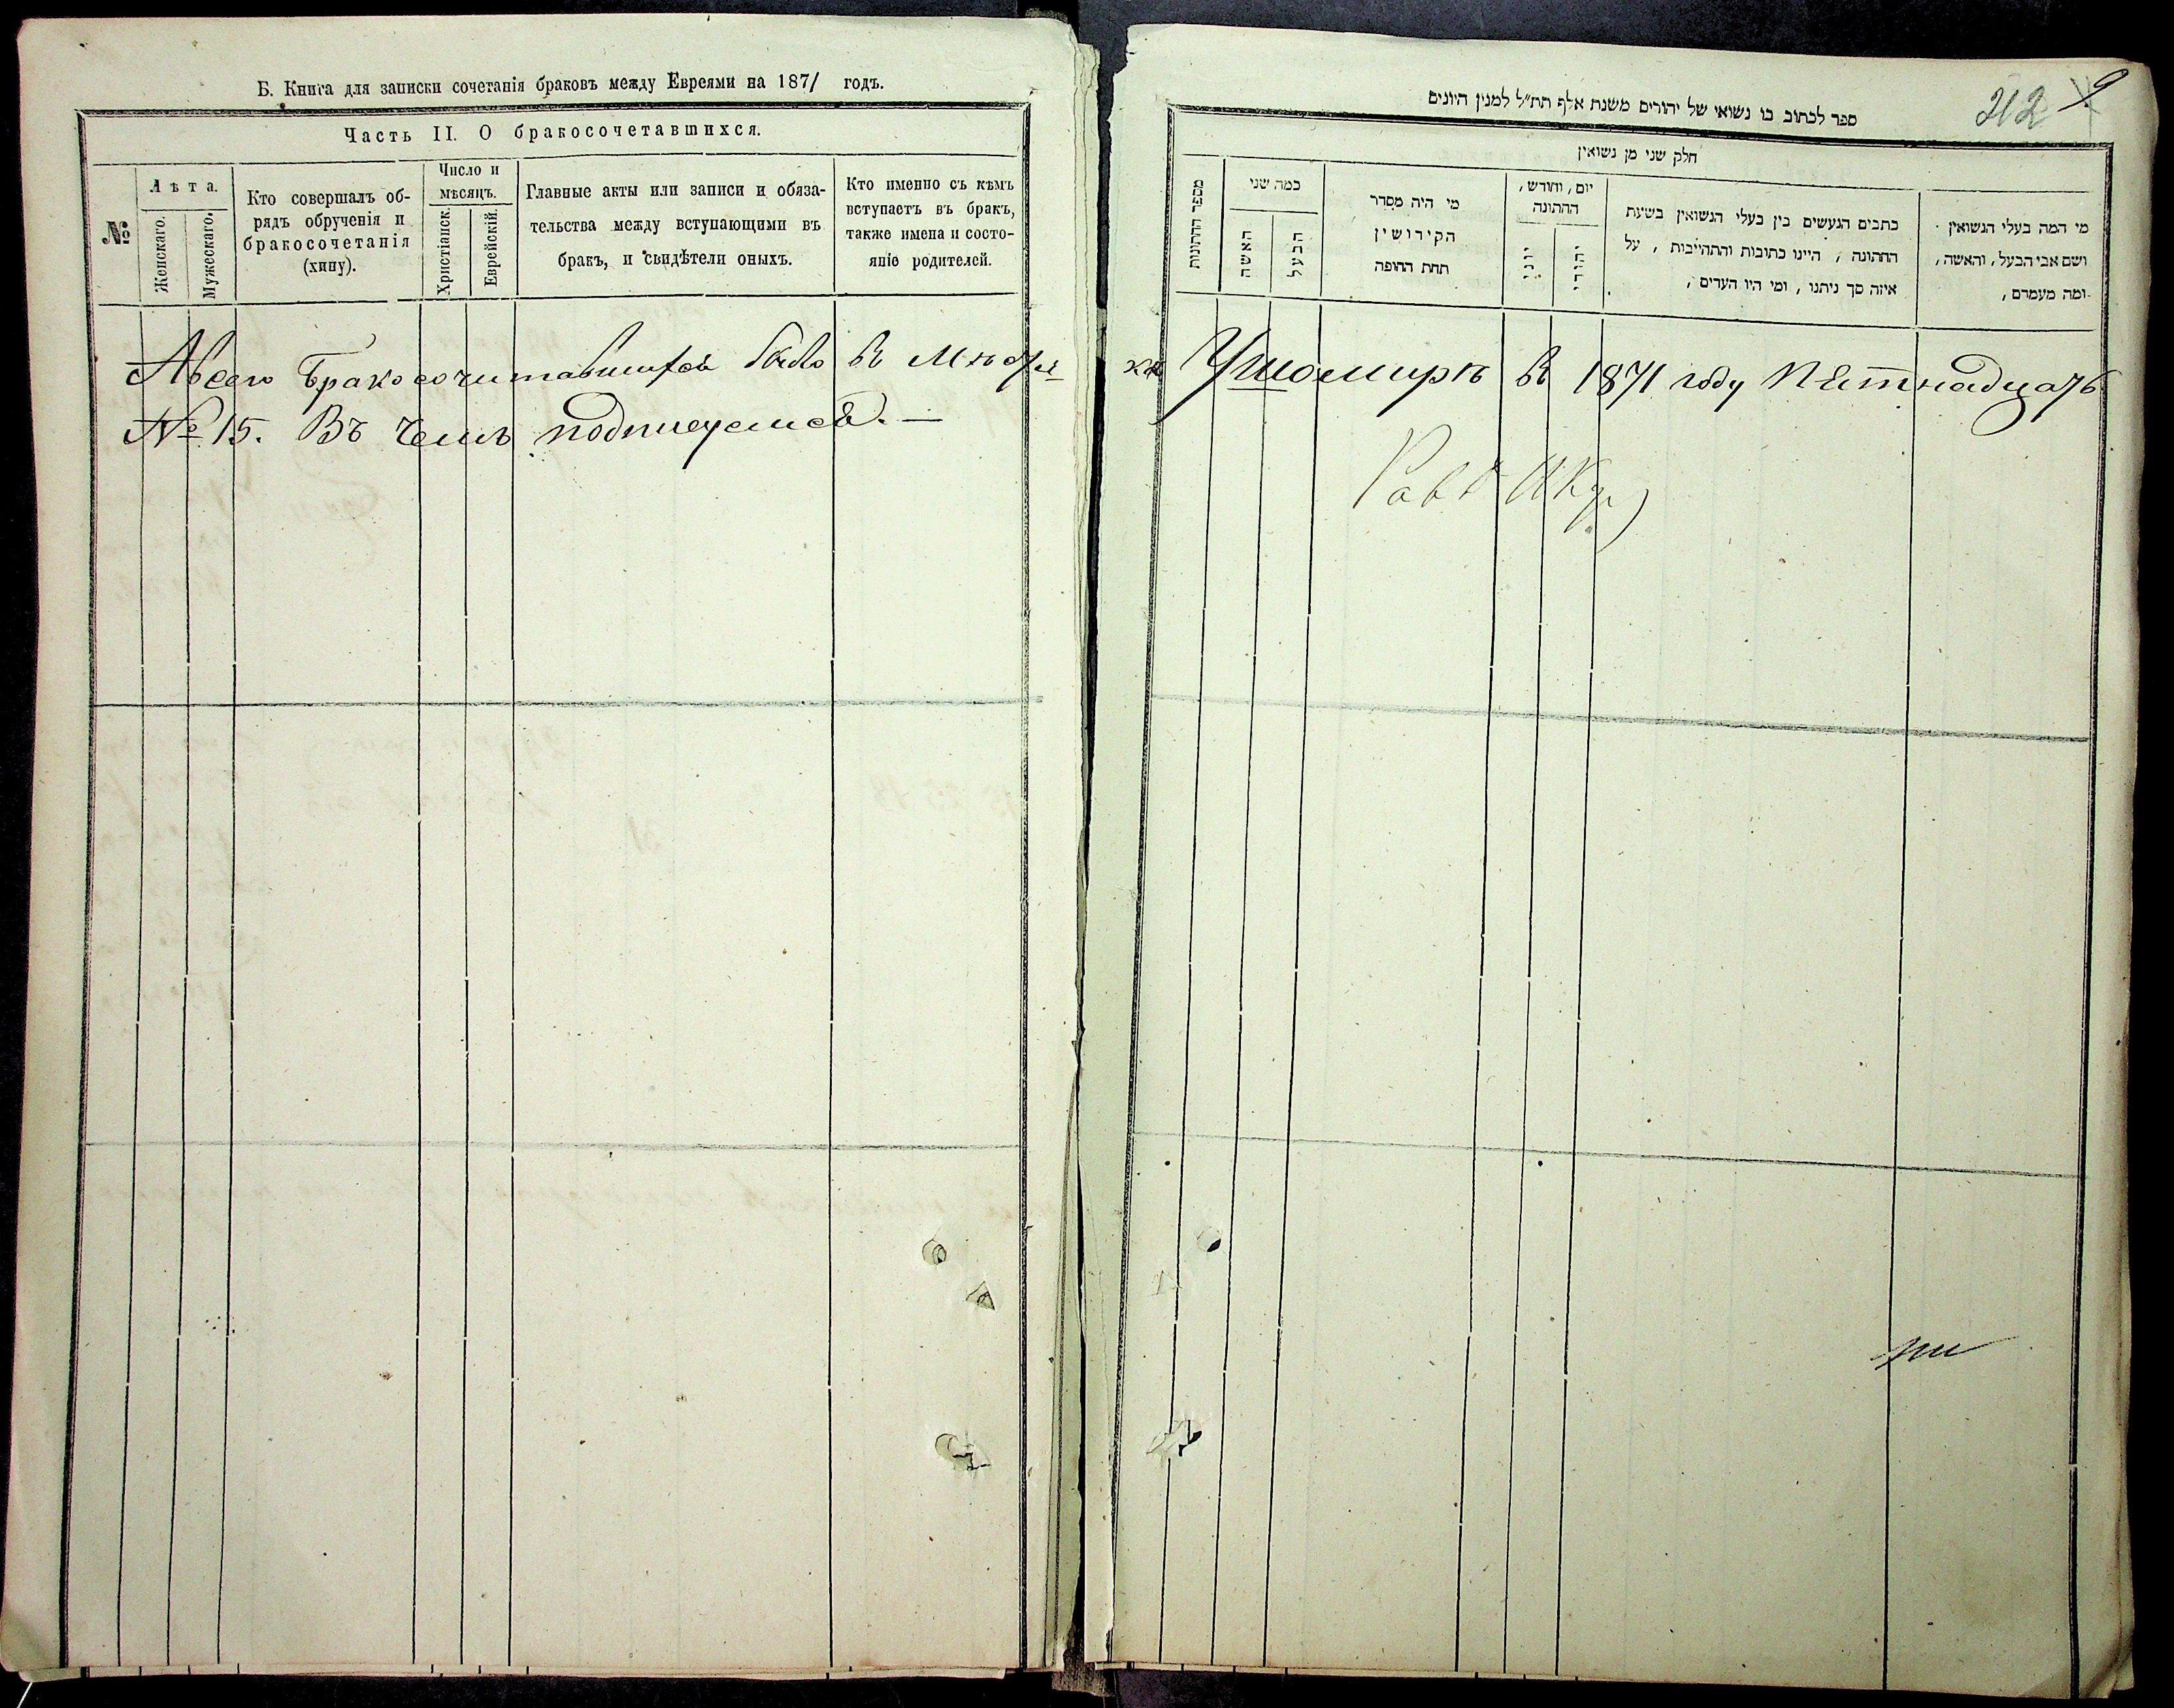 Б. Книга для записки сочетанія браковъ между Евреями на 1871 годъ.
Часть II. О бракосочетавшихся.
№
Лѣта.
Женскаго.
Мужескаго.
Кто совершалъ об-
рядъ обрученія и
бракосочетанія
(хипу).
Число и
мѣсяцъ.
Христіанск.
Еврейскій.
Главные акты или записи и обяза-
тельства между вступающими въ
бракъ, и свидѣтели оныхъ.
Кто именно съ кѣмъ
вступаетъ въ бракъ,
также имена и состо-
яніе родителей.
Авсего Бракосочитавшихся было в
№ 15. Въ чемъ подписуемся. —
212
ספר לכתוב בו נשואי של יהודים משנת אלף תת״ל למנין היונים
חלק שני מן נשואין
מספר החתונות
כמה שני
האשה
הבעל
מי היה מסדר
הקידושין
תחת החופה
יום, וחודש,
החתונה
יוני
יהודי
כתבים הנעשים בין בעלי הנשואין בשעת
החתונה, היינו כתובות והתחייבות, על
איזה סך ניתנו, ומי היו העדים,
מי המה בעלי הנשואין
ושם אבי הבעל, והאשה,
ומה מעמדם,
Ушомирѣ в 1871 году Петнадцать